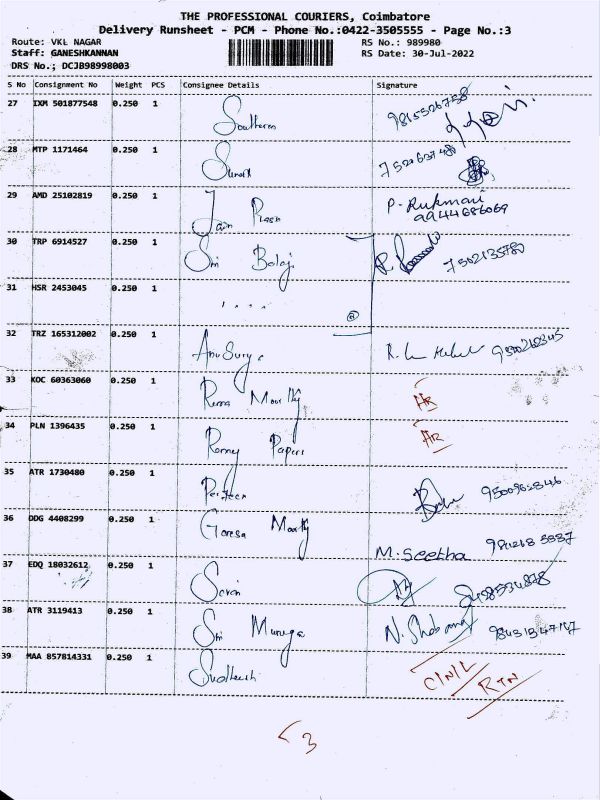 THE PROFESSIONAL COURIERS, Coimbatore
Delivery Runsheet - PCM - Phone No.:0422-3505555 - Page No.:3
Route: VKL NAGAR
RS No.: 989980
Staff: GANESHKANNAN
RS Date: 30-Jul-2022
DRS No.; DCJB98998003
S No Consignment No Weight PCS Consignee Details Signature
27 IXM 501877548 0.250 1 Southern
28 MTP 1171464 0.250 1
29 AMD 25102819 0.250 1 Jain P. Rukmani
9944686069
30 TRP 6914527 0.250 1 Sri Balaji 7502135780
31 HSR 2453045 0.250 1
32 TRZ 165312002 0.250 1 Anu Surya
33 KOC 60363060 0.250 1 Rama Moorthy AR
34 PLN 1396435 0.250 1 Romy Papers AR
35 ATR 1730480 0.250 1 Perfect
36 DDG 4408299 0.250 1 Moorthy M. Seetha
37 EDQ 18032612 0.250 1
38 ATR 3119413 0.250 1 Sri Muruga N. Shobana
39 MAA 857814331 0.250 1 RTN
3